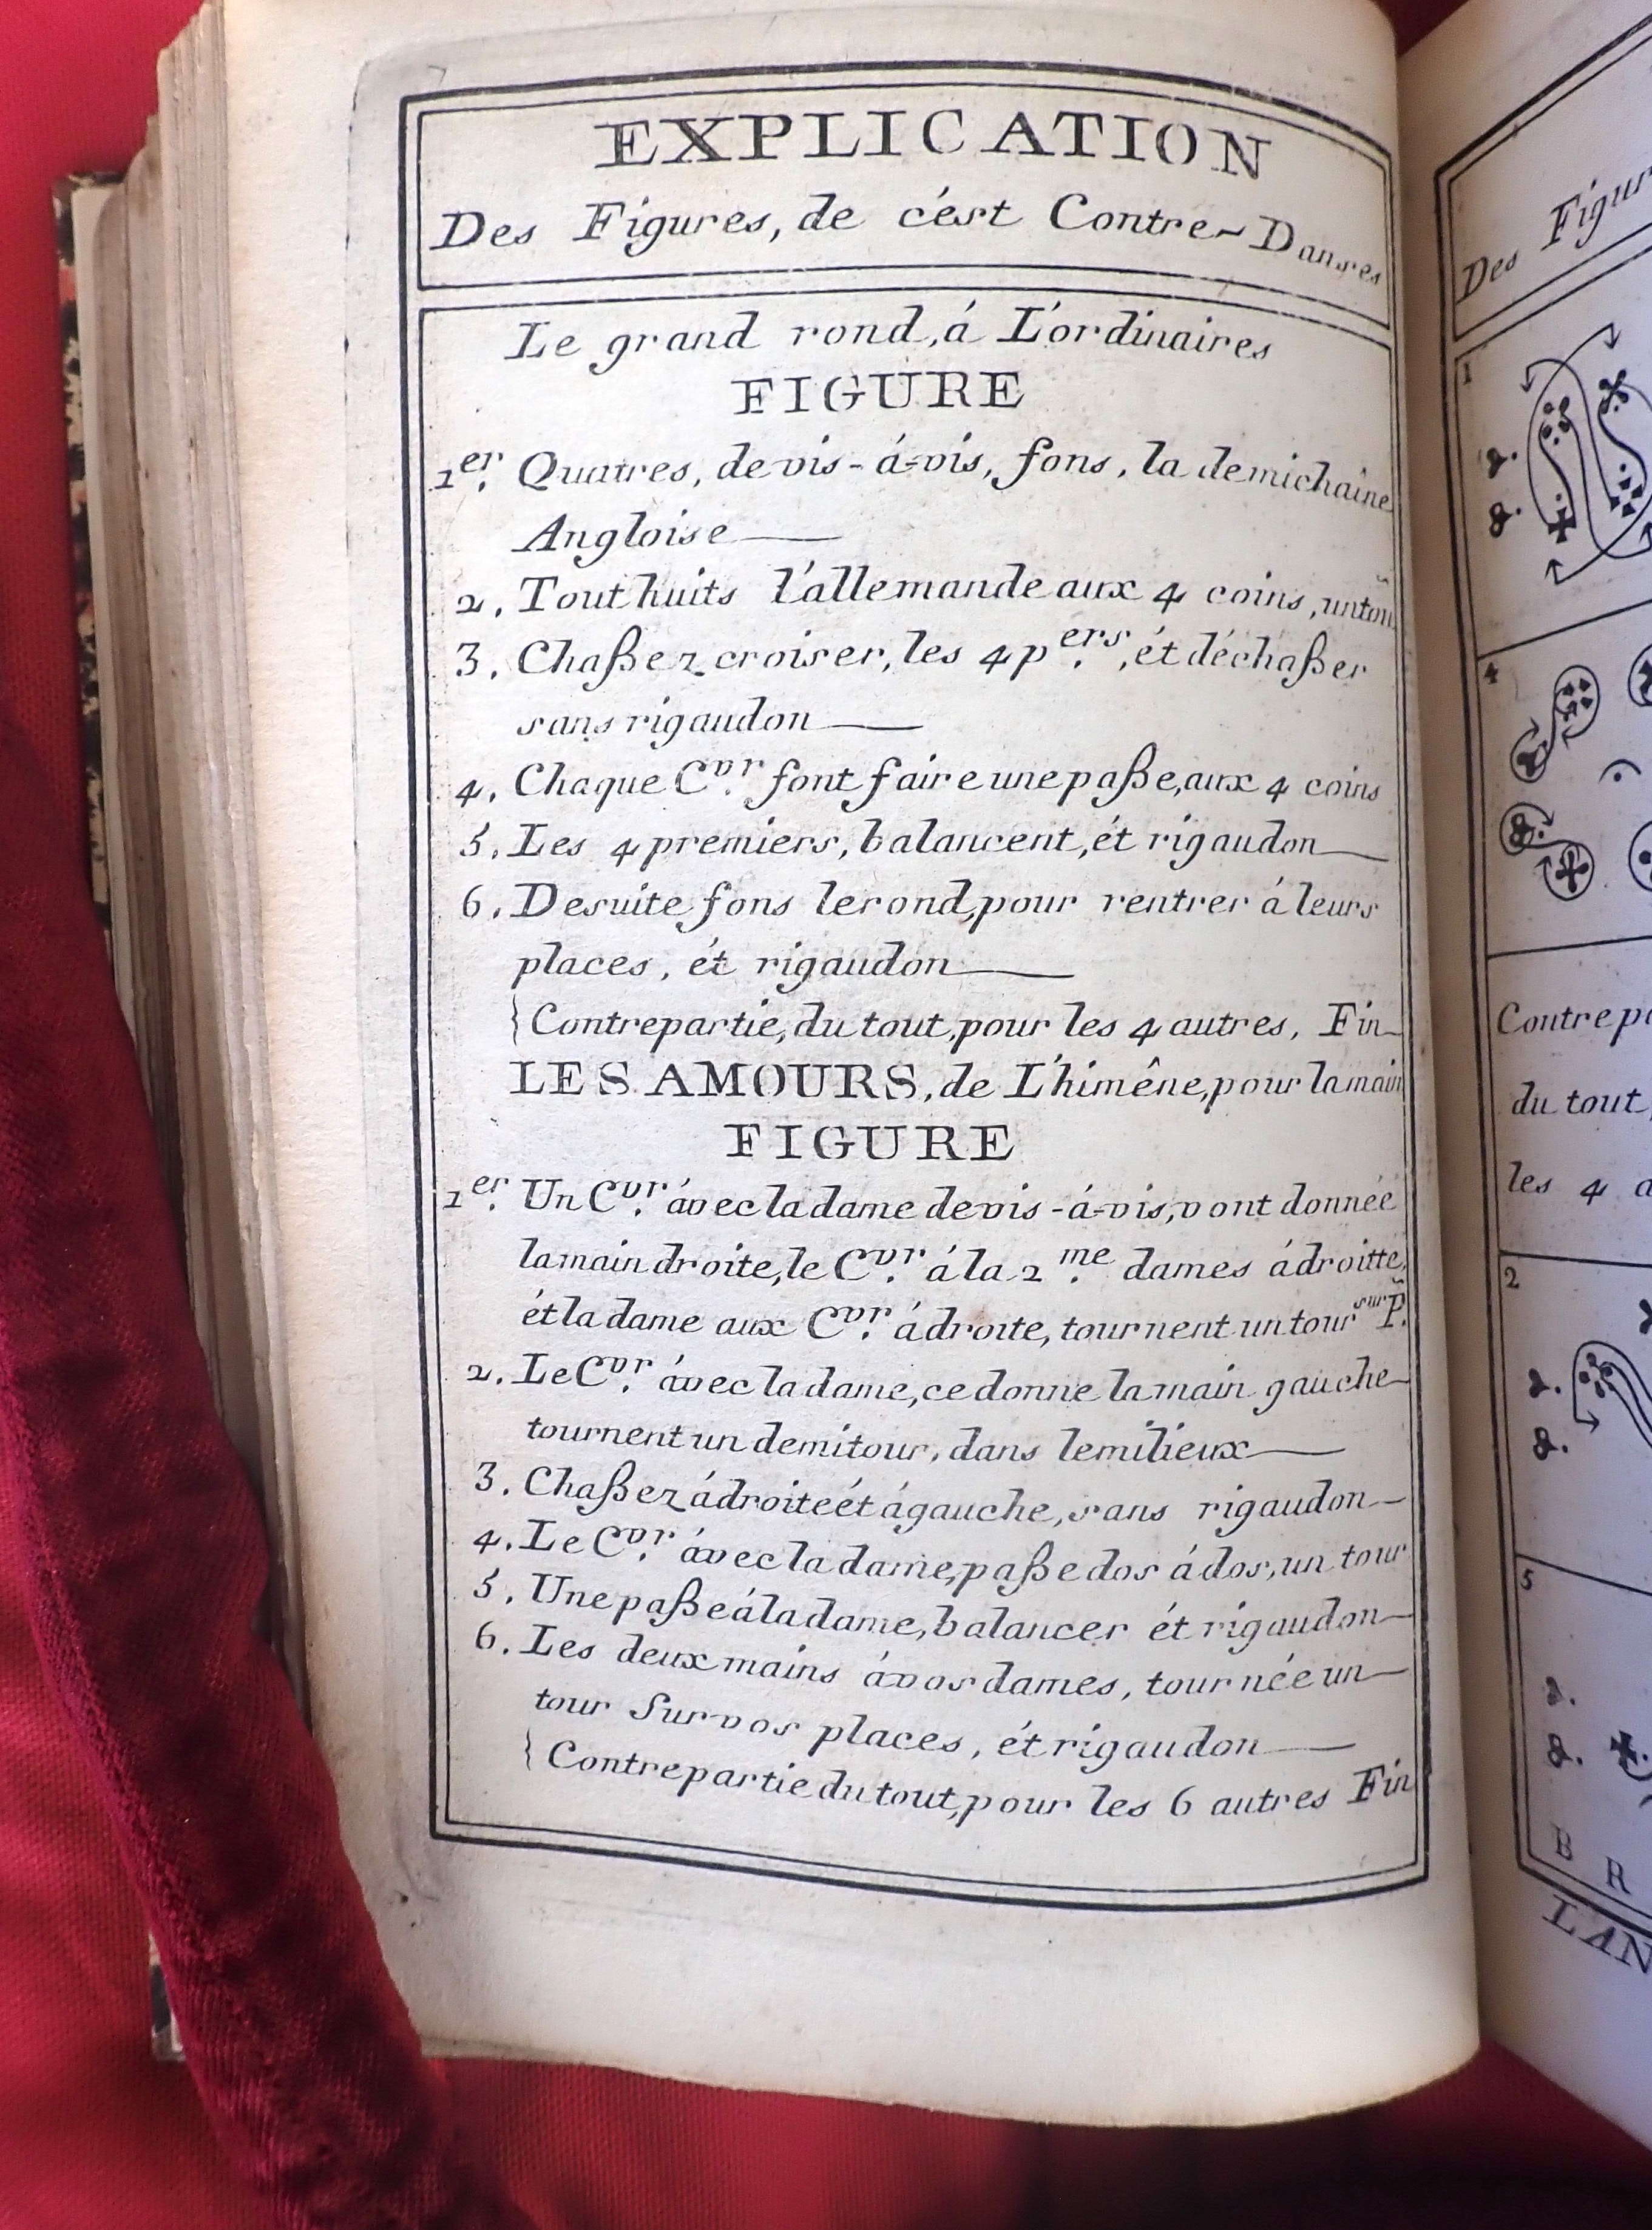 EXPLICATION
Des Figures, de c'ést Contre-Danses
Le grand rond, á L'ordinaires
FIGURE
1er. Quatres, de vis-á-vis, fons, la demichaîne
Angloise
2. Tout huits l'allemande aux 4 coins, un tou
3. Chaßez croiser, les 4 p.ers, ét déchaßer
sans rigaudon
4. Chaque C.vr font faire une paße, aux 4 coins
5. Les 4 premiers, balancent, ét rigaudon
6. Desuite fons le rond, pour rentrer á leurs
places, ét rigaudon
{Contrepartie, du tout, pour les 4 autres, Fin
LES AMOURS, de L'himêne, pour la main
FIGURE
1er. Un C.vr ávec la dame de vis-á-vis, vont donnée
la main droite, le C.vr á la 2.me dames á droitte,
ét la dame aux C.vr á droite, tournent un tour sur P.
2. Le C.vr ávec la dame, ce donne la main gauche
tournent un demi tour, dans le milieux
3. Chaßez á droite ét á gauche, sans rigaudon
4. Le C.vr ávec la dame, paße dos á dos, un tour
5. Une paße á la dame, balancer ét rigaudon
6. Les deux mains á vos dames, tournée un
tour Sur vos places, ét rigaudon
{Contrepartie du tout, pour les 6 autres Fin
Des Figur
1
2.
8.
4
8.
Contrep
du tout,
les 4 a
2
2.
8.
5
2.
8.
B R
LAN